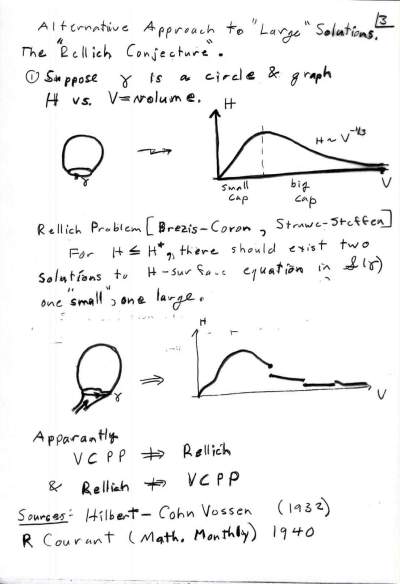 13
Alternative Approach to "Large" Solutions.
The "Rellich Conjecture".
① Suppose γ is a circle & graph
H vs. V=volume.
H
H ~ V^-1/3
γ
V
small cap
big cap
Rellich Problem [Brezis-Coron, Struwe-Steffen]
For H ≤ H*, there should exist two
solutions to H-surface equation in (γ)
one "small", one large.
H
γ
V
Apparantly
VCPP ⇏ Rellich
& Rellich ⇏ VCPP
Sources: Hilbert-Cohn Vossen (1932)
R Courant (Math. Monthly) 1940